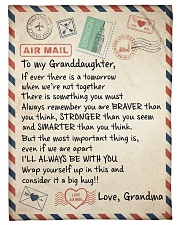 AIR MAIL
To my Granddaughter,
If ever there is a tomorrow
when we're not together
There is something you must
Always remember you are BRAVER than
you think, STRONGER than you seem
and SMARTER than you think.
But the most important thing is,
even if we are apart
I'LL ALWAYS BE WITH YOU
Wrap yourself up in this and
consider it a big hug!!
Love, Grandma